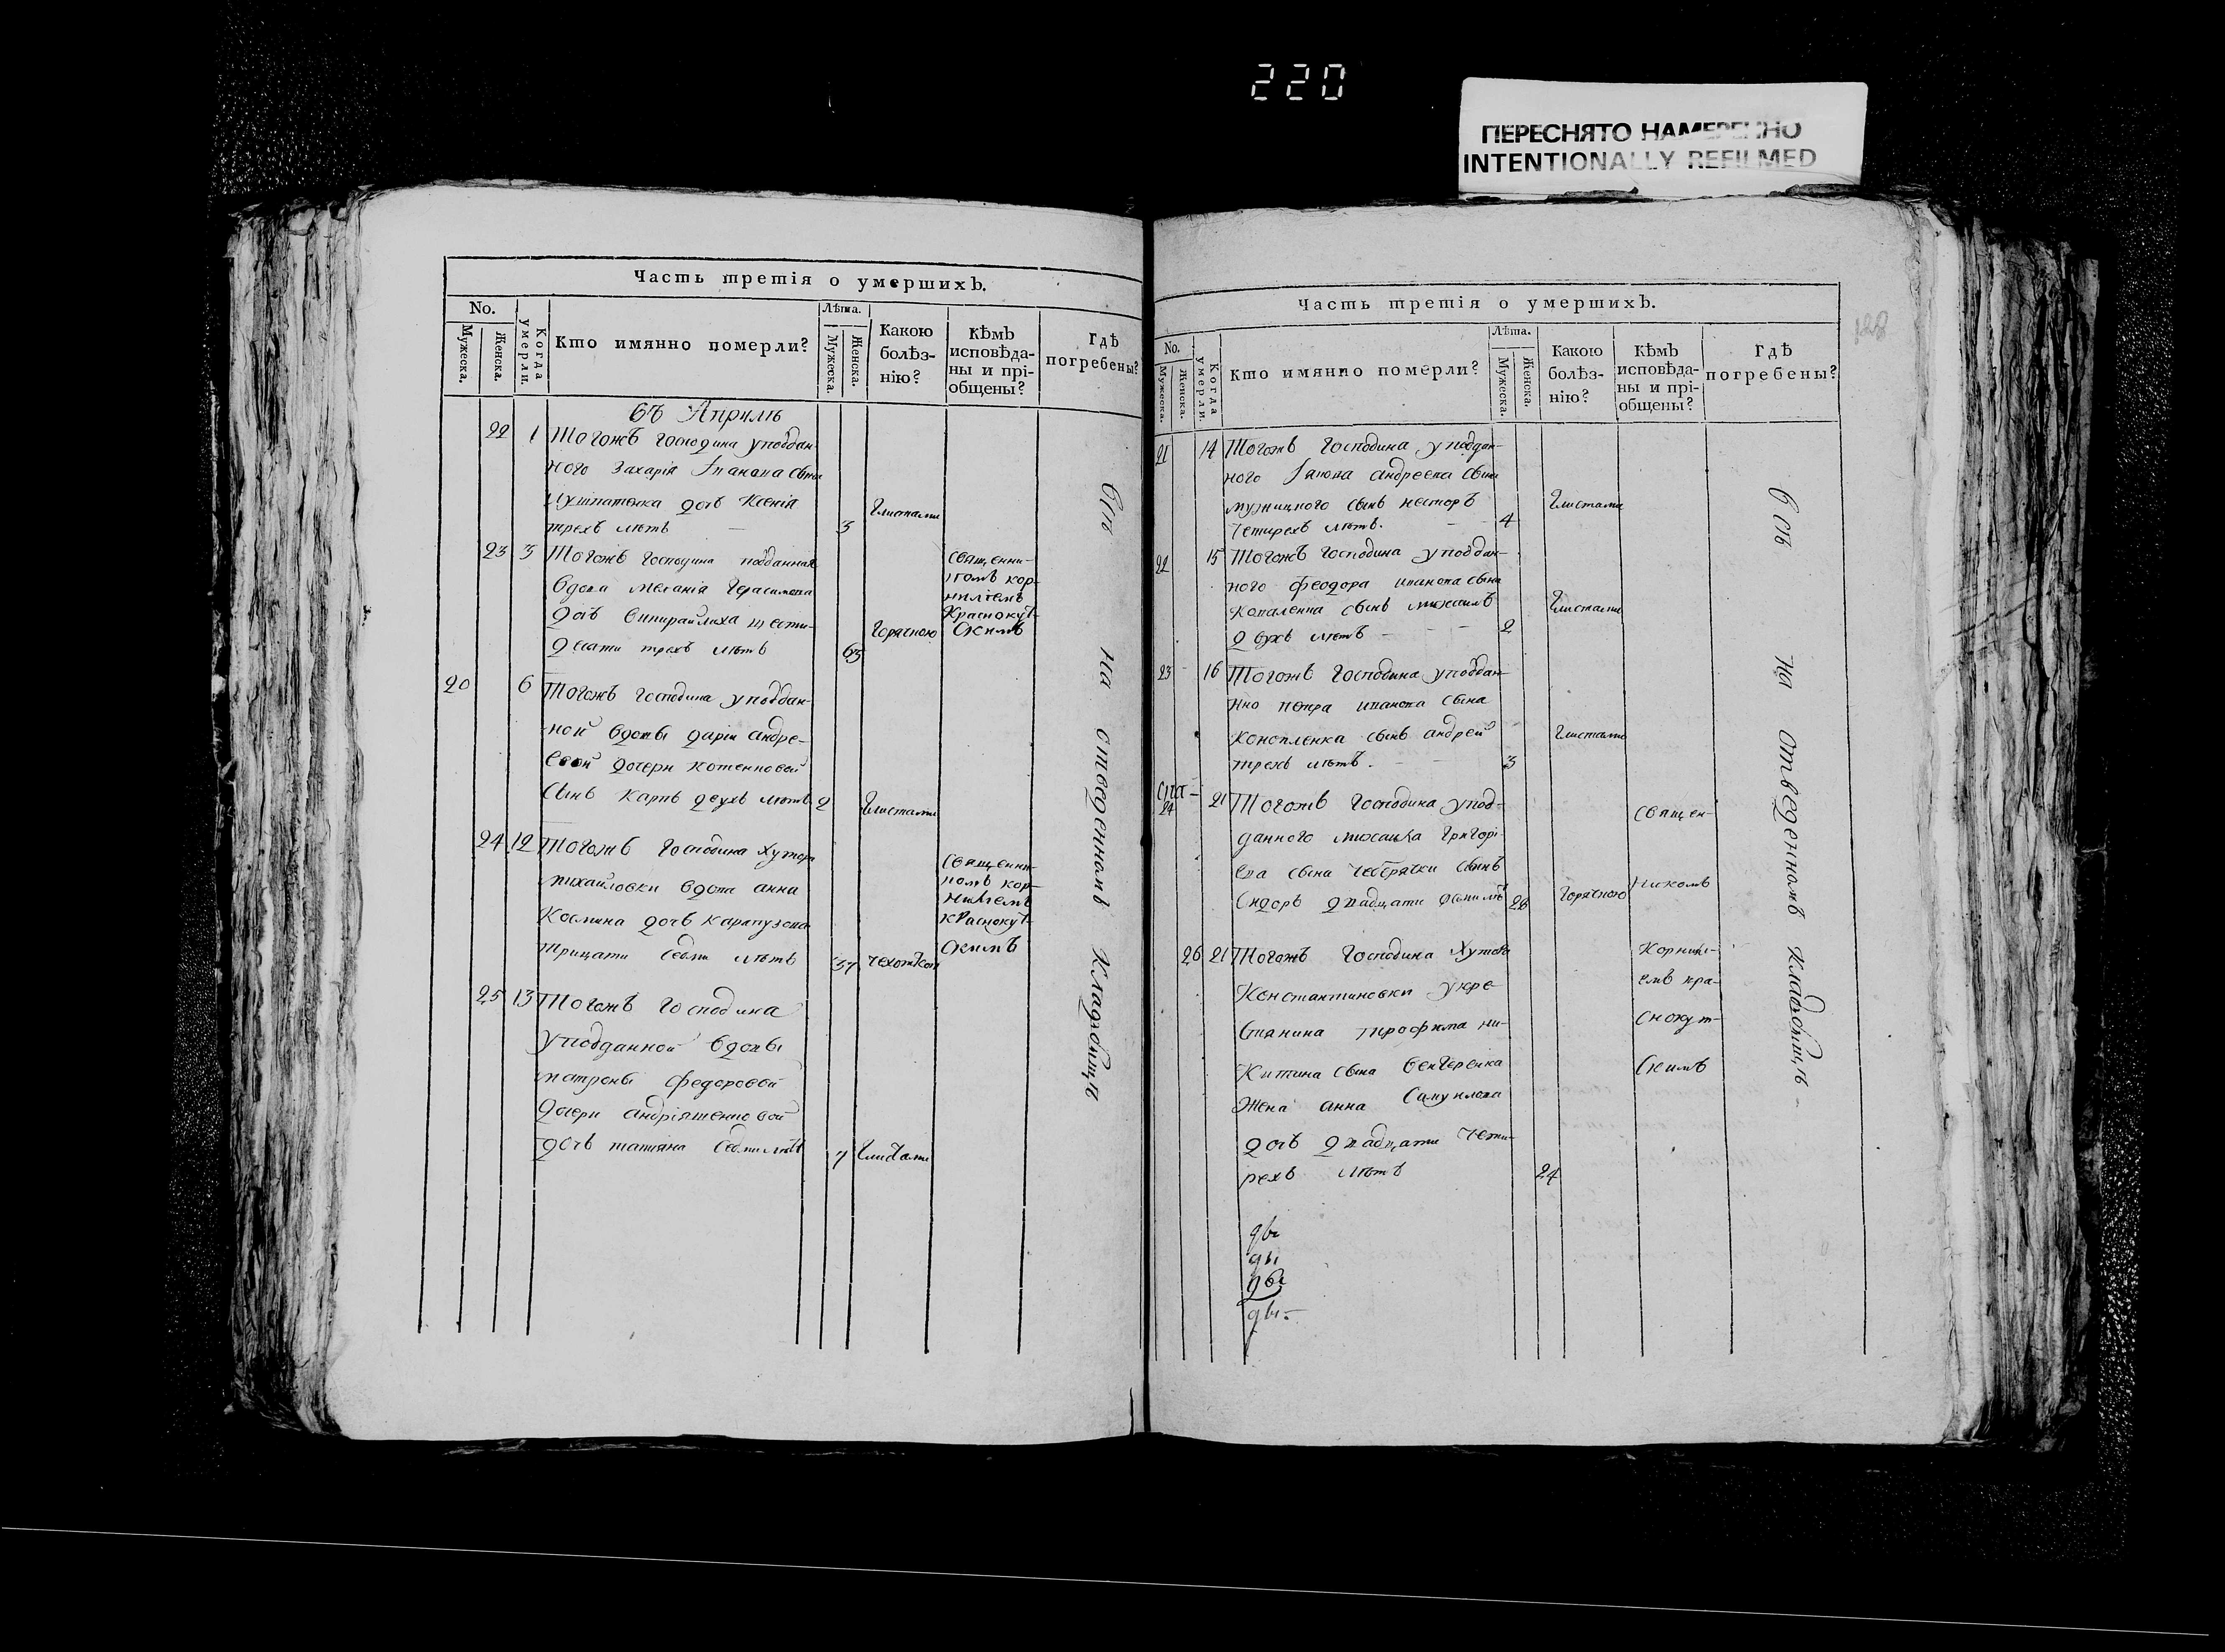 220
ПЕРЕСНЯТО НАМЕРЕННО
INTENTIONALLY REFILMED
128
Часть третія о умершихъ.
No.
Мужеска.
Женска.
Когда умерли.
Кто имянно померли?
Лѣта.
Мужеска.
Женска.
Какою болѣз-
нію?
Кѣмъ
исповѣда-
ны и прі-
общены?
Гдѣ
погребены?
въ Априлѣ
22 1 Тогожъ господина уподдан-
ного Захарія Іванова сына
дочь Ксенія
трехъ лѣтъ 3 Глистами
23 3 Тогожъ господина подданная
вдова Меланія Герасимова
дочь шести-
десяти трехъ лѣтъ 63 Горячкою
Священни-
комъ Кор-
ниліемъ
Краснокут-
скимъ
20 6 Тогожъ господина уподдан-
ной вдовы Даріи Андре-
евой дочери Котенковой
сынъ Карпъ двухъ лѣтъ 2 Глистами
24 12 Тогожъ господина хутора
Михайловки вдова Анна
Космина дочь Карапузова
трицати седми лѣтъ 37 чехоткой
Священни-
комъ Кор-
ниліемъ
Краснокут-
скимъ
25 13 Тогожъ господина
уподданной вдовы
Матроны Федоровой
дочери Андріяшенковой
дочь Татіяна седми лѣтъ 7 Глистами
все на отведенномъ кладбищѣ
Часть третія о умершихъ.
No.
Мужеска.
Женска.
Когда умерли.
Кто имянно померли?
Лѣта.
Мужеска.
Женска.
Какою
болѣз-
нію?
Кѣмъ
исповѣда-
ны и прі-
общены?
Гдѣ
погребены?
21 14 Тогожъ господина уподдан-
ного Андреева сына
сынъ Несторъ
четирехъ лѣтъ. 4 Глистами
22 15 Тогожъ господина уподдан-
ного Феодора Иванова сына
Коваленка сынъ Михаилъ
двухъ лѣтъ 2 Глистами
23 16 Тогожъ господина уподдан-
Петра Иванова сына
Конопленка сынъ Андрей
трехъ лѣтъ. 3 Глистами
24 21 Тогожъ господина упод-
данного Михаила Григорі-
ева сына сынъ
Сидоръ двадцати лѣтъ Горячкою
26 21 Тогожъ господина хутора
Константиновки укре-
Трофима Ни-
китина сына
жена Анна Самуилова
дочь двадцати чети-
рехъ лѣтъ 24
Священ-
никомъ
Корнилі-
емъ Кра-
снокут-
скимъ
все на отведенномъ кладбищѣ